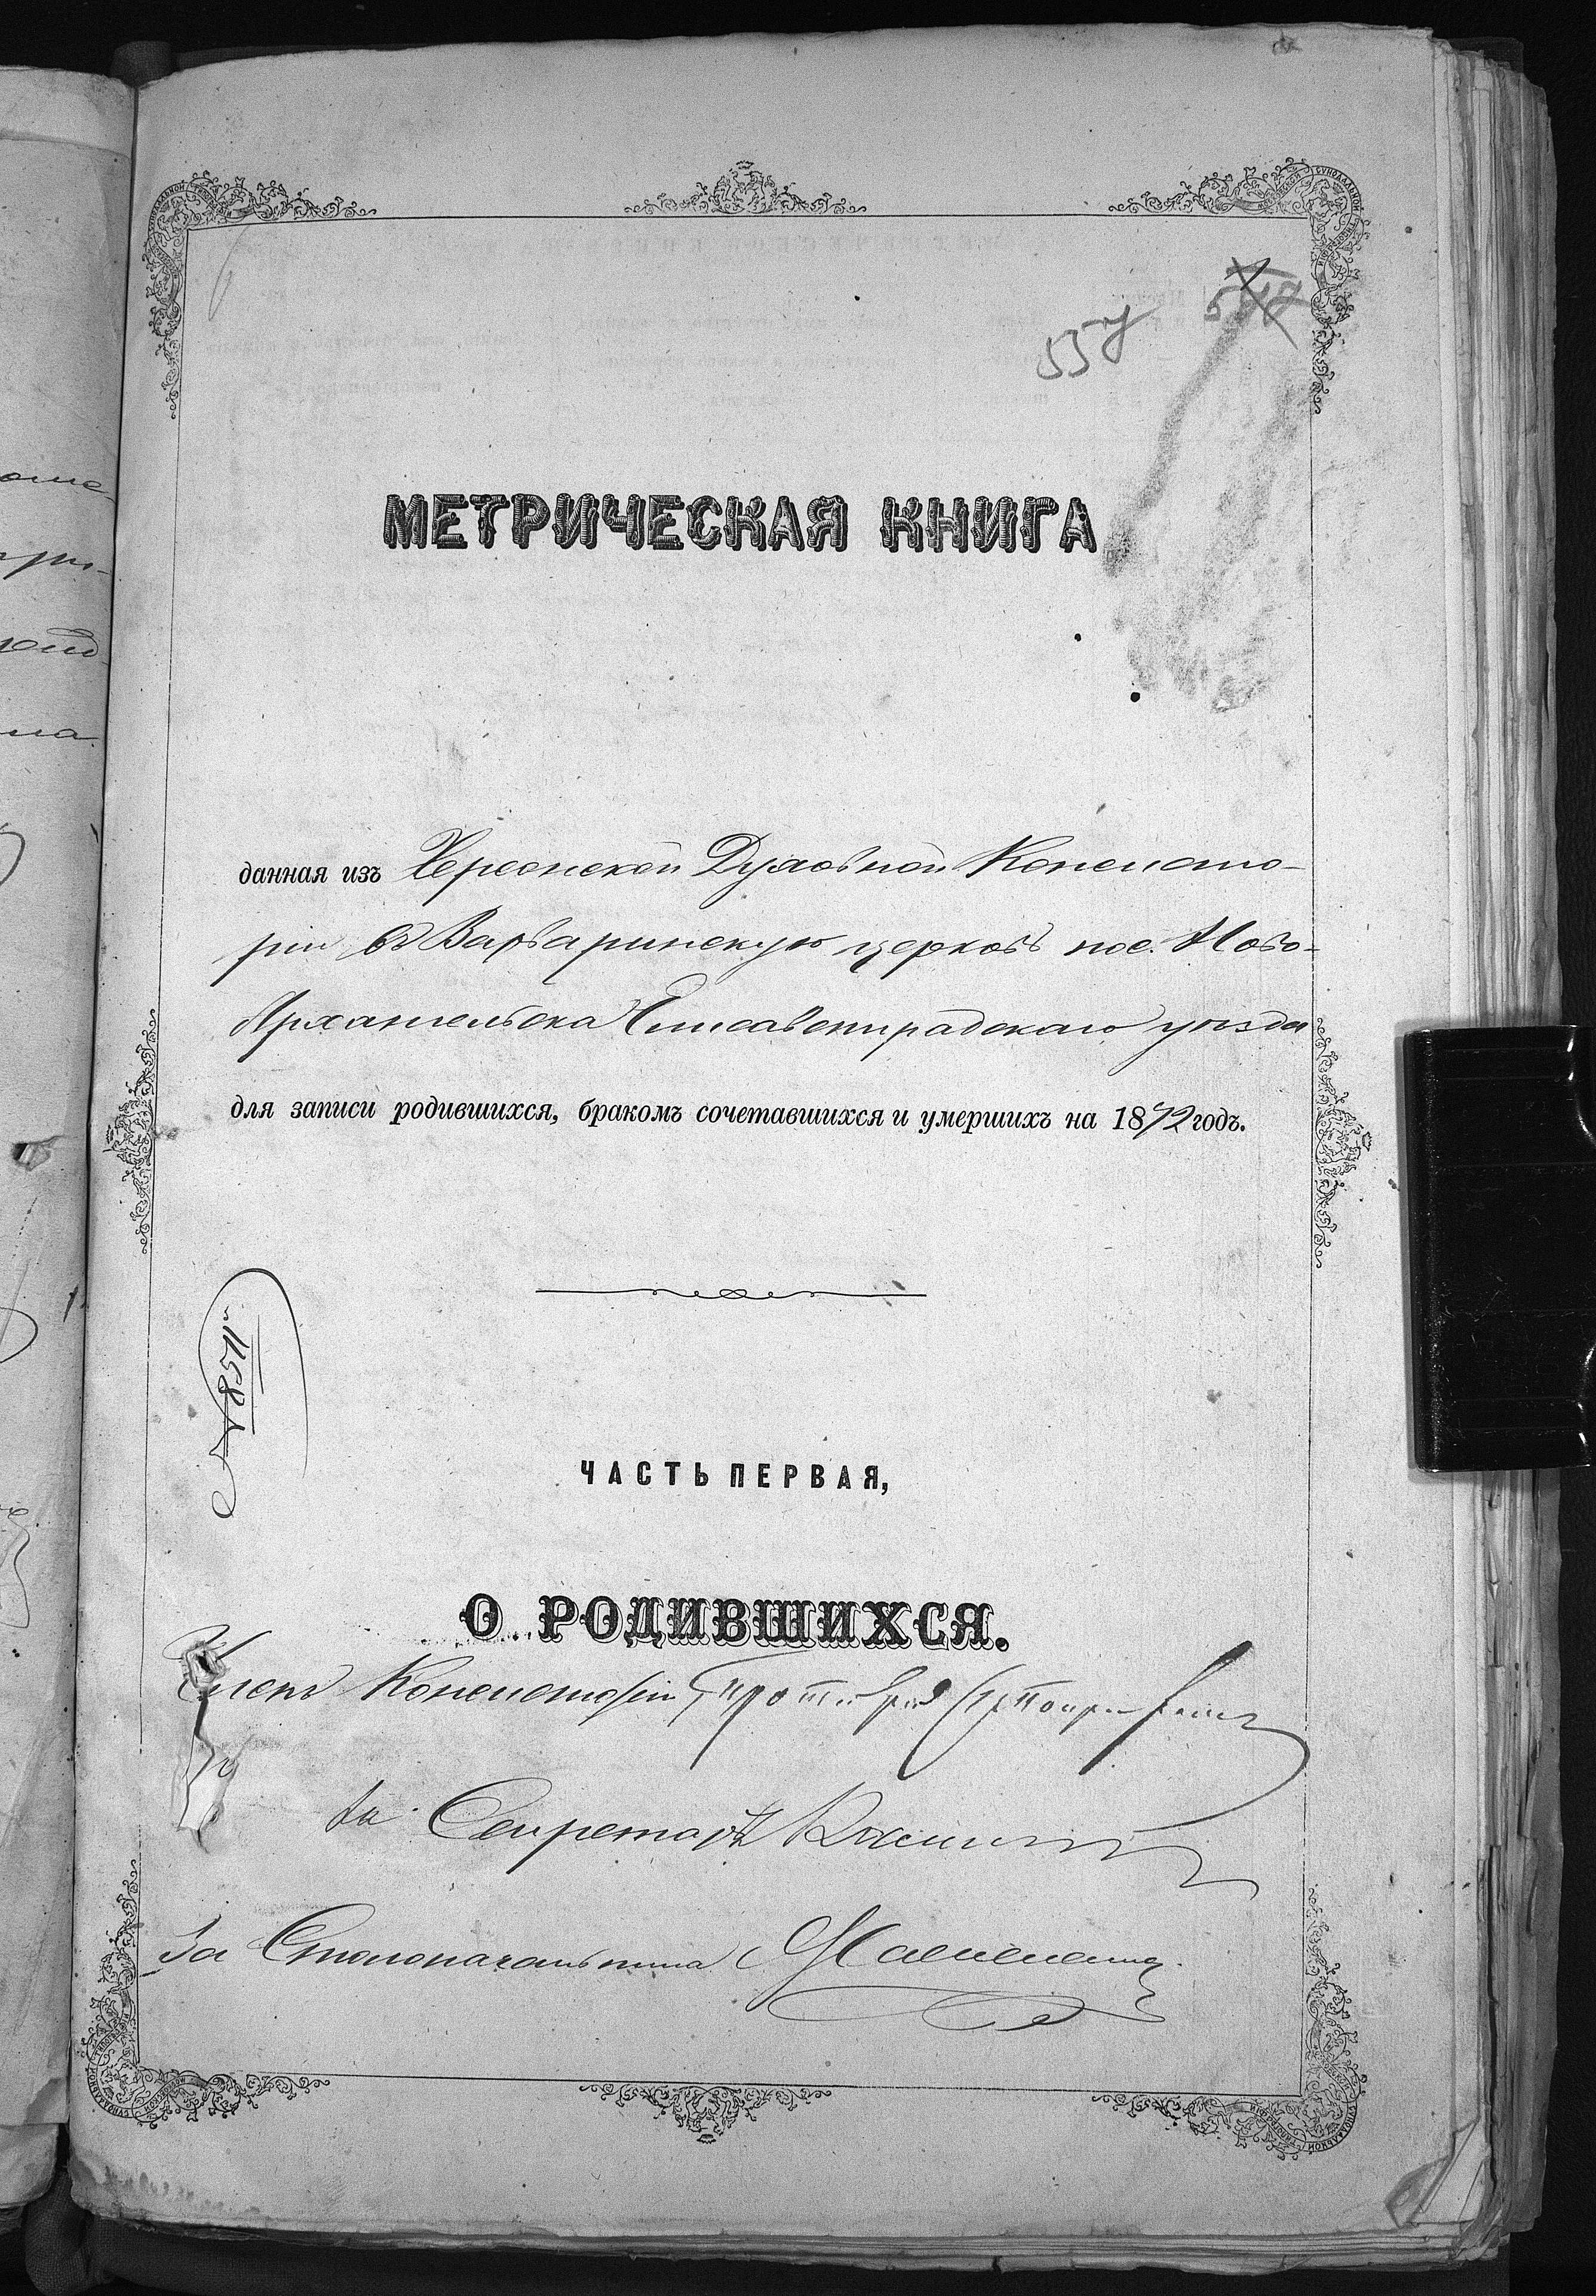 557
МЕТРИЧЕСКАЯ КНИГА
данная изъ Херсонской Духовной Консисто-
ріи въ Варваринскую церковь пос. Ново-
Архангельска Елисаветградскаго уѣзда
для записи родившихся, бракомъ сочетавшихся и умершихъ на 1872 годъ.
№ 8511
ЧАСТЬ ПЕРВАЯ,
О РОДИВШИХСЯ.
Членъ Консисторіи Протоіерей
За Секретарь
За Столоначальника